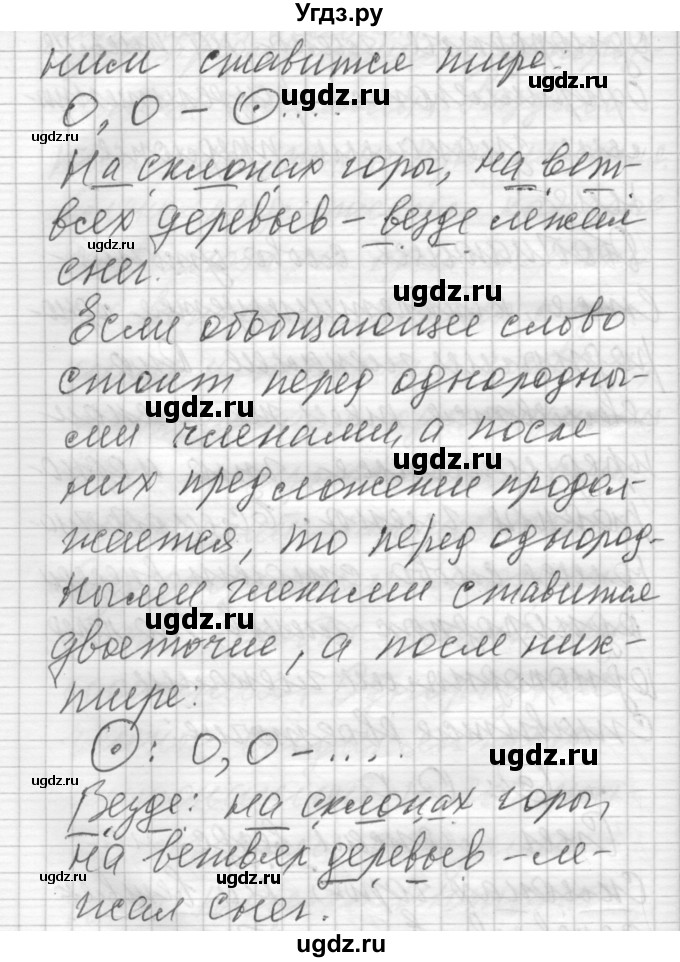 Угдз.ру
ним ставится тире:
O, O – ⊙ ....
На склонах горы, на вет-
вях деревьев – везде лежал
снег.
Если обобщающее слово
стоит перед однородны-
ми членами, а после
них предложение продол-
жается, то перед однород-
ными членами ставится
двоеточие, а после них –
тире:
⊙: O, O – ....
Везде: на склонах горы,
на ветвях деревьев – ле-
жал снег.
ugdz.ru
ugdz.ru
ugdz.ru
ugdz.ru
ugdz.ru
ugdz.ru
ugdz.ru
ugdz.ru
ugdz.ru
ugdz.ru
ugdz.ru
ugdz.ru
ugdz.ru
ugdz.ru